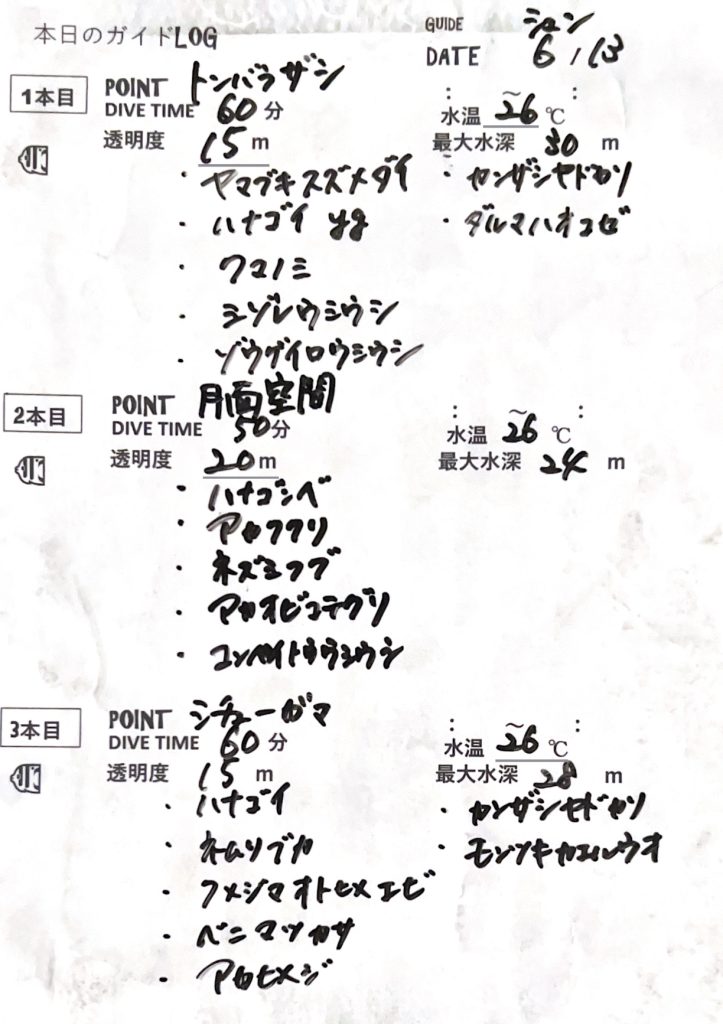 本日のガイドLOG
GUIDE シュン
DATE 6 / 13
1本目 POINT トンバラザシ
DIVE TIME 60 分 水温 ~26 ℃
透明度 15 m 最大水深 30 m
・ヤマブキスズメダイ ・カンザシヤドカリ
・ハナゴイ yg ・ダルマハオコゼ
・クマノミ
・ミゾレウミウシ
・ゾウゲイロウミウシ
2本目 POINT 月面空間
DIVE TIME 50 分 水温 ~26 ℃
透明度 20 m 最大水深 24 m
・ハナゴンベ
・ネズミフグ
・アカオビコテグリ
・コンペイトウウミウシ
3本目 POINT シチューガマ
DIVE TIME 60 分 水温 ~26 ℃
透明度 15 m 最大水深 28 m
・ハナゴイ ・カンザシヤドカリ
・ネムリブカ ・モンツキカエルウオ
・オトヒメエビ
・ベニマツカサ
・アカヒメジ